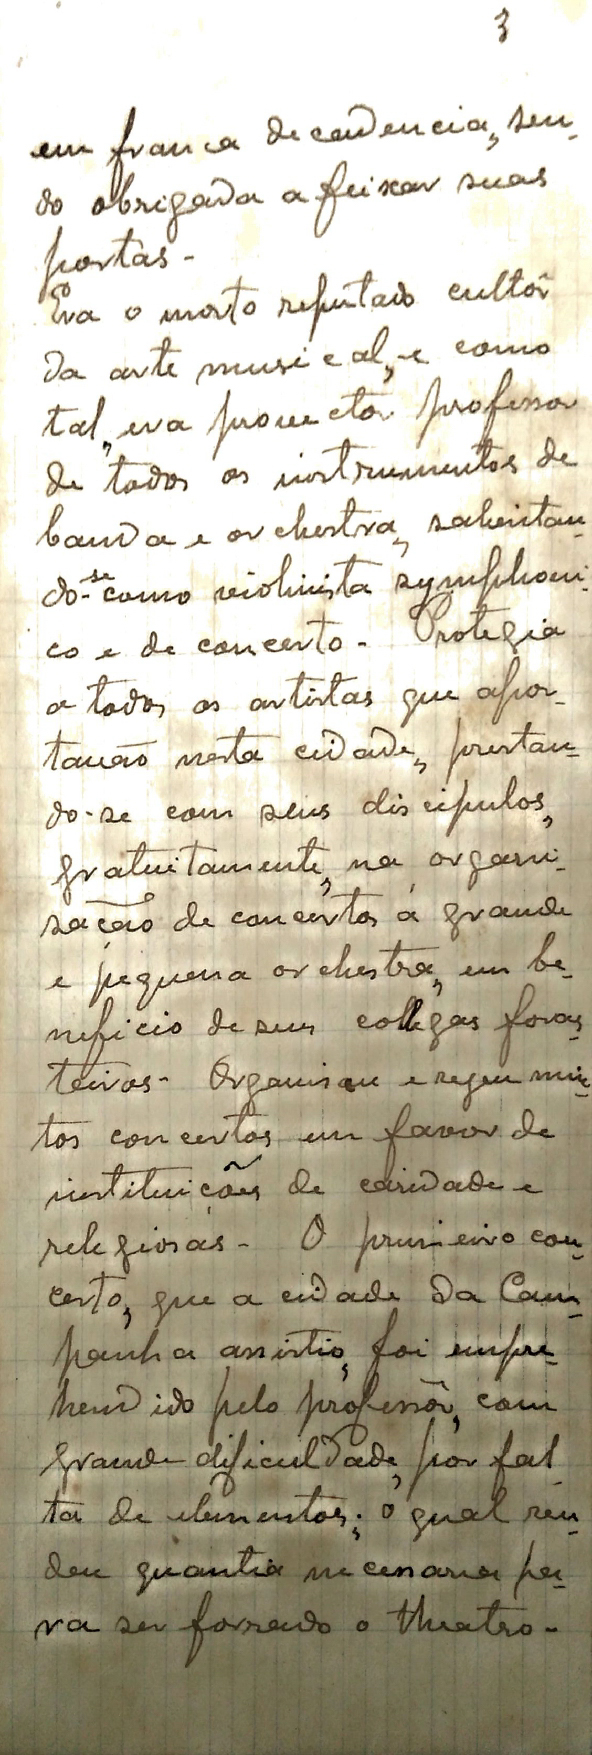 3
em franca decadencia, sen-
do obrigada a feixar suas
portas-
Era o morto reputado cultôr
da arte musical, e como
tal, era provector professor
de todos os instrumentos de
banda e orchestra, salientan-
do-se como violinista symphoni-
co e de concerto- Protegia
a todos os artistas que apor-
tavão nesta cidade, prestan-
do-se com seus discipulos,
gratuitamente, na organi-
sação de concertos á grande
e pequena orchestra, em be-
neficio de seus collegas foras-
teiros- Organisou e regeu mui-
tos concertos em favor de
instituições de caridade e
religiosas- O primeiro con-
certo, que a cidade da Cam-
panha assistio, foi empre-
hendido pelo professôr, com
grande dificuldade, por fal
ta de elementos; o qual ren-
deu quantia necessaria pa-
ra ser forrado o theatro-